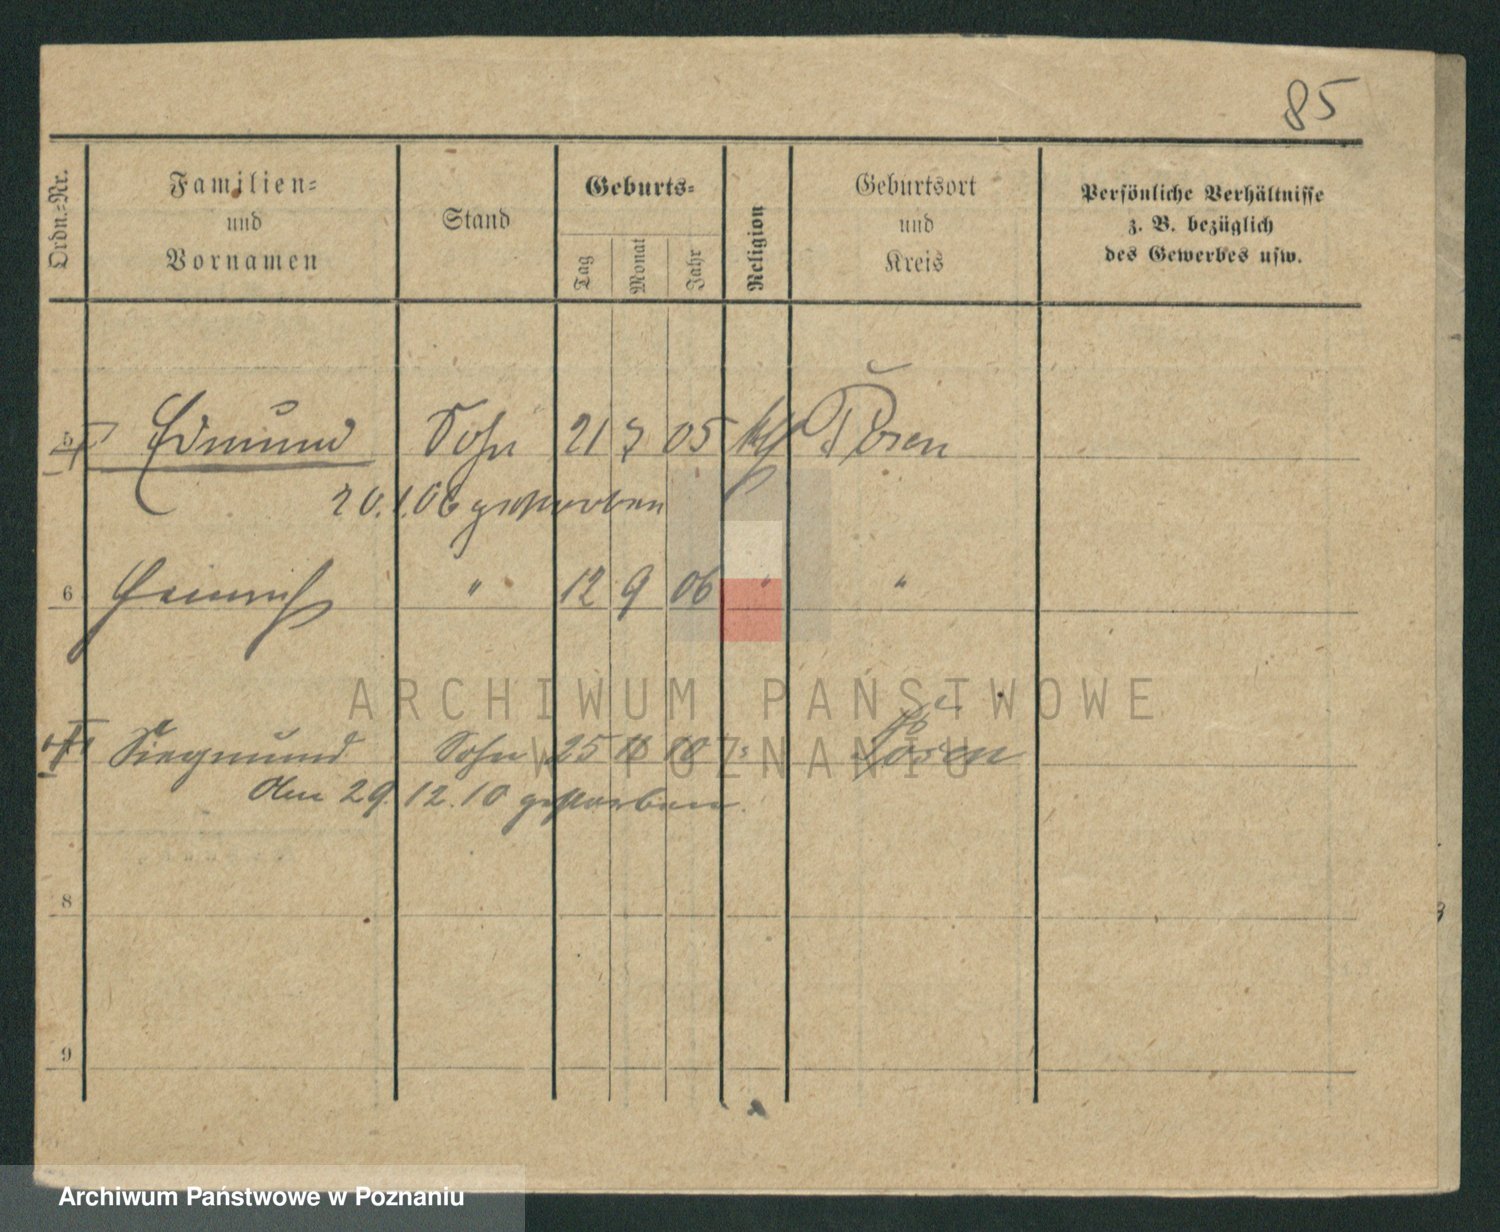 85
Ordn.-Nr.
Familien-
und
Vornamen
Stand
Geburts-
Tag
Monat
Jahr
Religion
Geburtsort
und
Kreis
Persönliche Verhältnisse
z. B. bezüglich
des Gewerbes usw.
5 Edmund Sohn 21 7 05 kth Posen
20.1.06 gestorben
6 Heinrich " 12 9 06 " "
ARCHIWUM PAŃSTWOWE
W POZNANIU
Siegmund Sohn 25 10 Posen
den 29.12.10 gestorben.
8
9
Archiwum Państwowe w Poznaniu